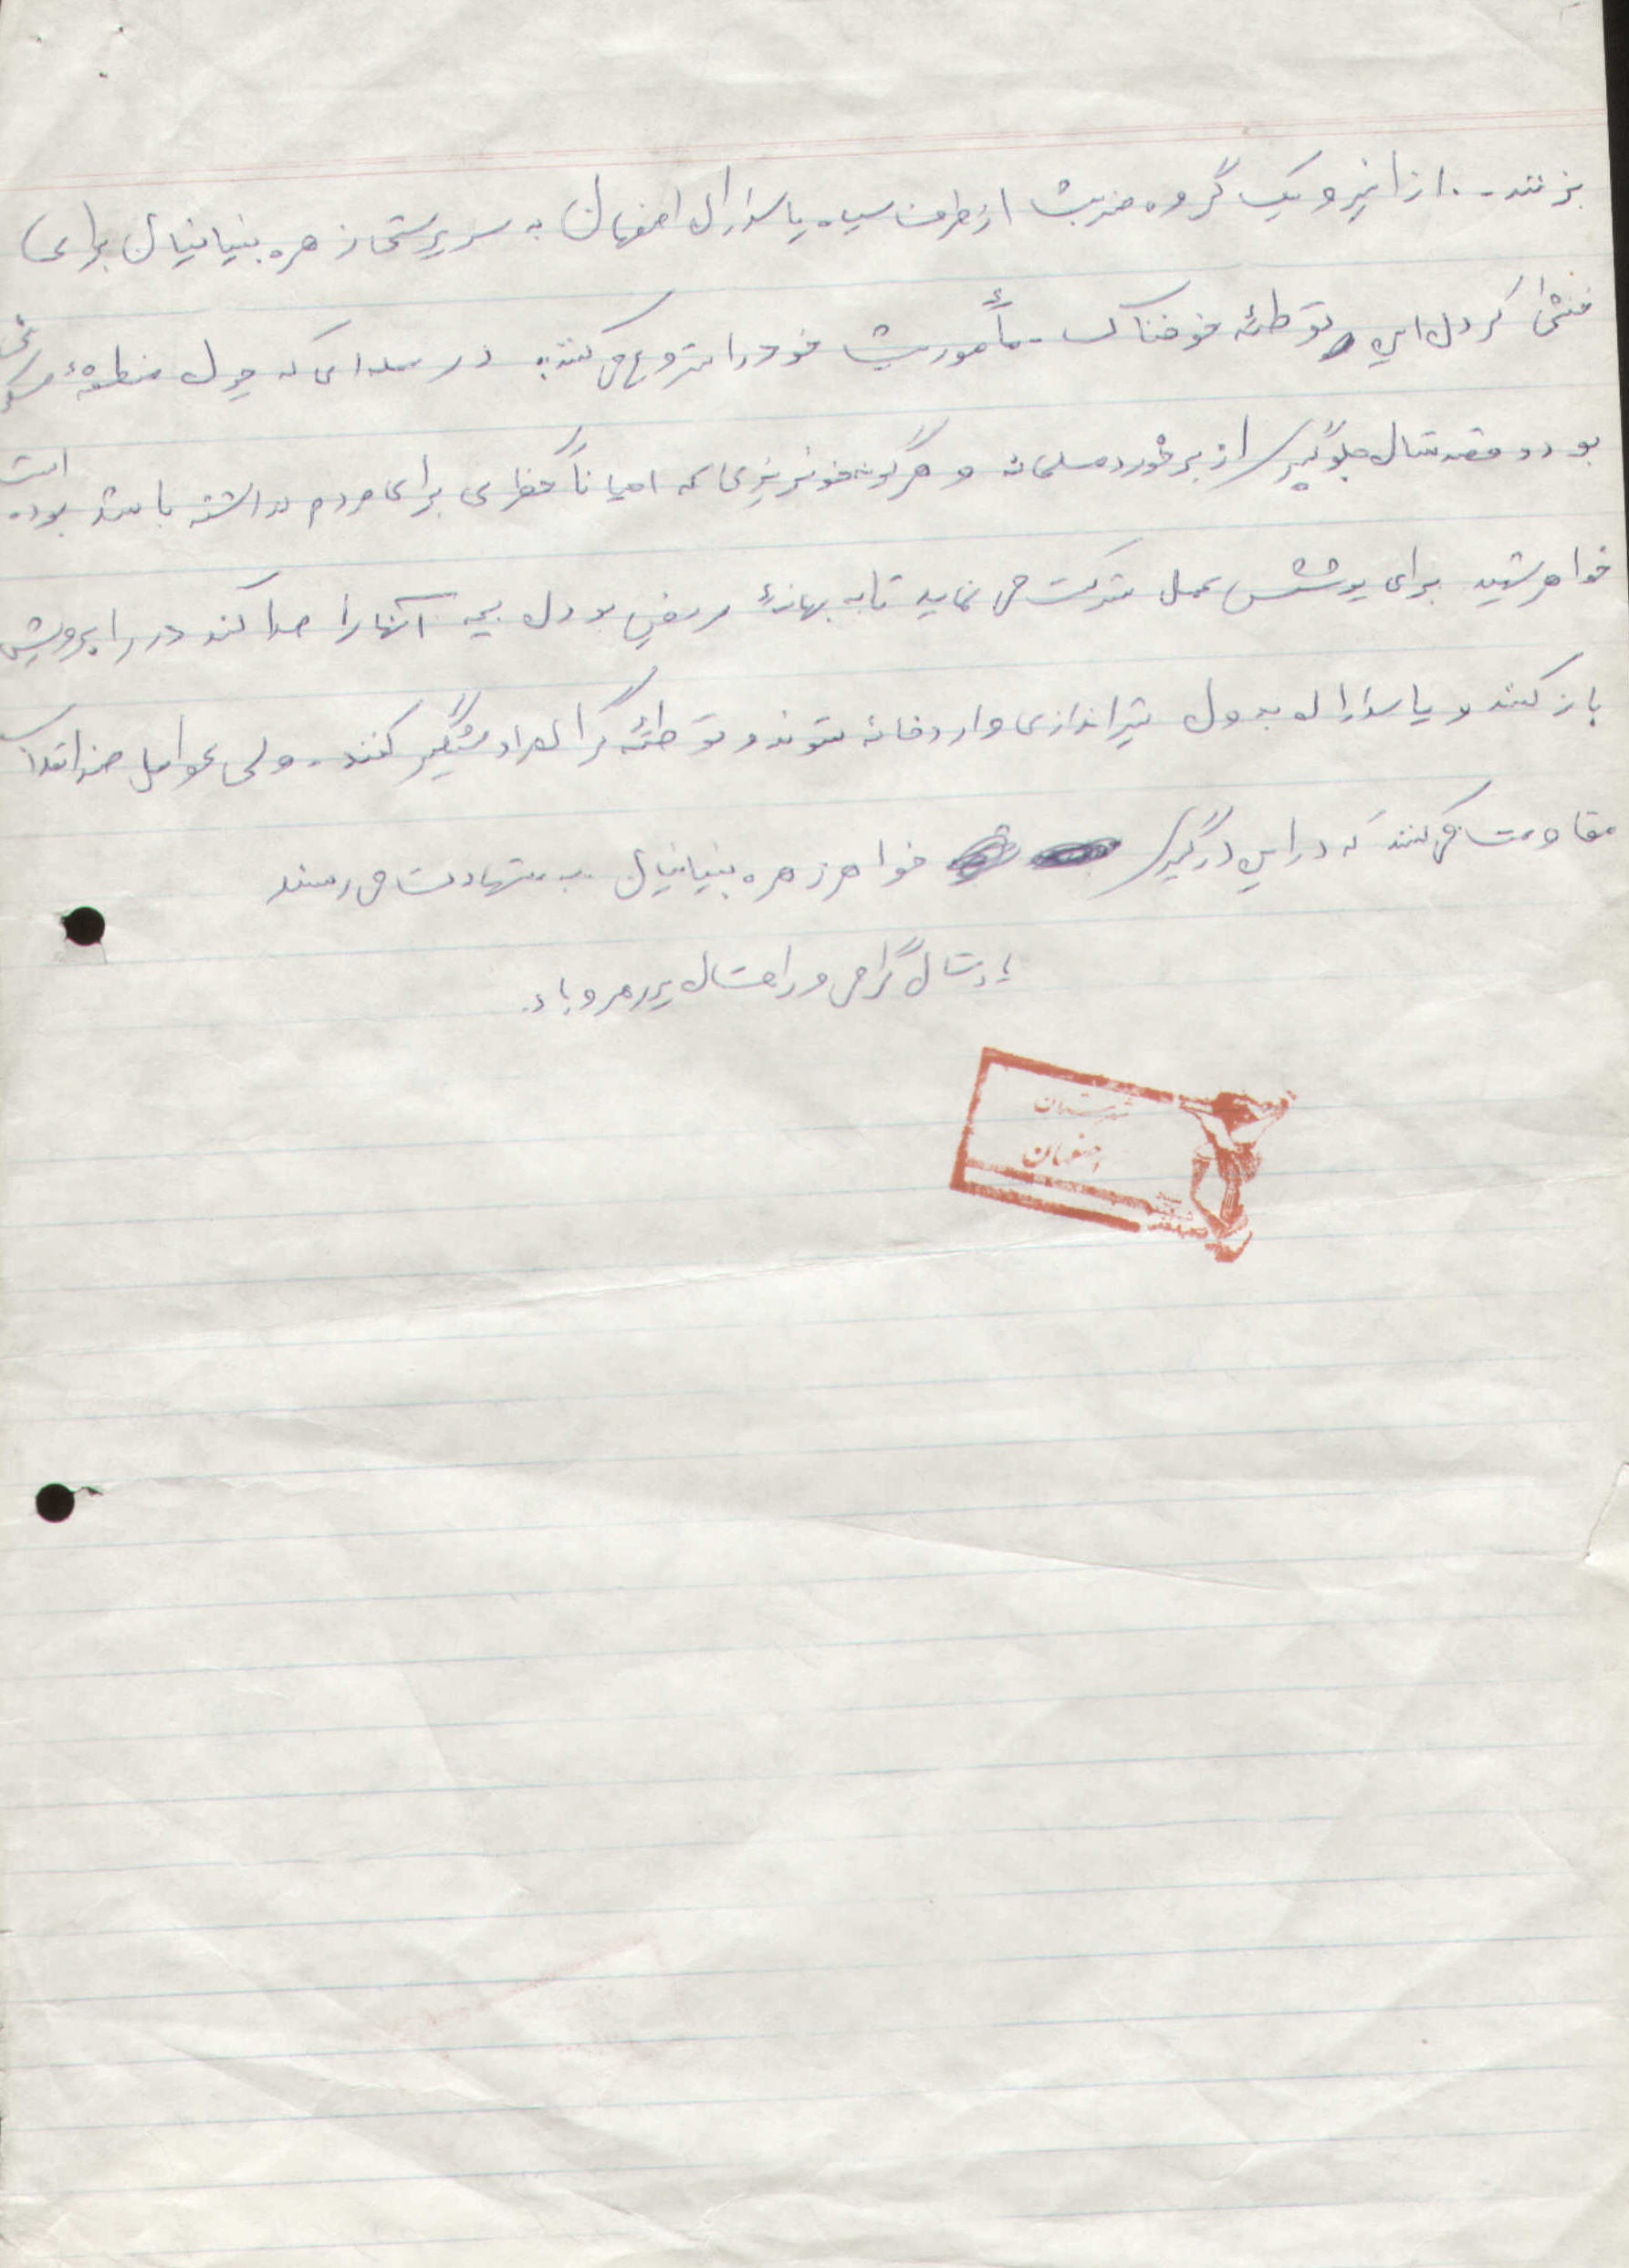 بزنند. از اینرو یک گروه ضربت از طرف سپاه پاسداران اصفهان به سرپرستی زهره بنیانیان برای
خنثی کردن این توطئه خوفناک مأموریت خود را شروع می‌کنند. در که چون منطقهٔ
بود و مقصدشان جلوگیری از برخورد مسلحانه و هرگونه خونریزی که احیاناً خطری برای مردم داشته باشد بوده است
خواهر شهید برای پوشش عمل شرکت می نماید تا به بهانهٔ مریض بودن بچه آنها را صدا کند در را برویش
باز کنند و پاسداران بدون تیراندازی وارد خانه شوند و توطئه گران را دستگیر کنند. ولی عوامل ضد انقلاب
مقاومت می‌کنند که در این درگیری خواهر زهره بنیانیان به شهادت می رسند
یادشان گرامی و راهشان پر رهرو باد.
شهرستان
اصفهان